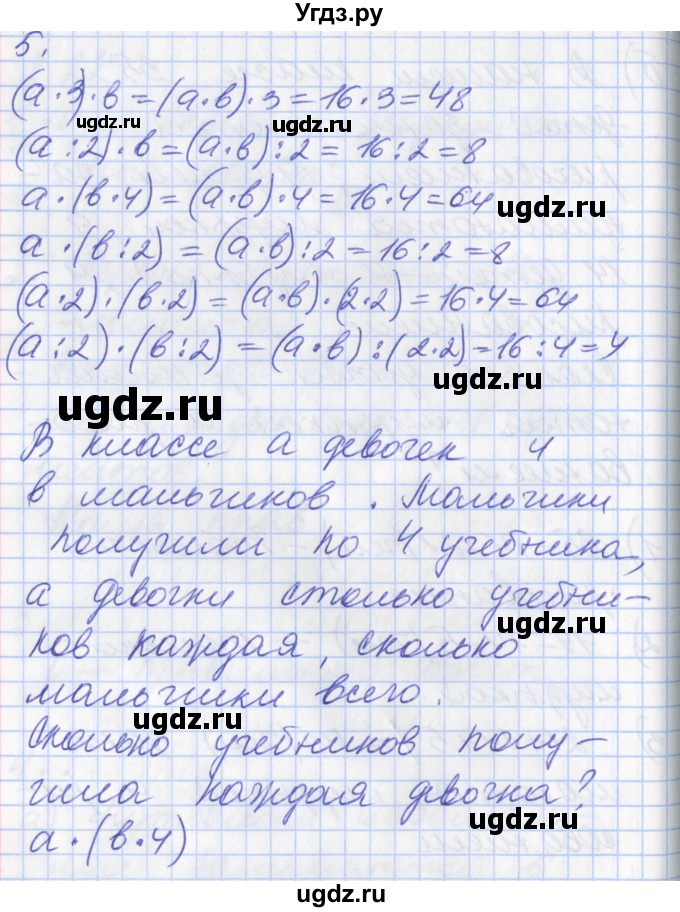 Угдз.ру
5.
(а · 3) · в = (а · в) · 3 = 16 · 3 = 48
ugdz.ru
ugdz.ru
(а : 2) · в = (а · в) : 2 = 16 : 2 = 8
а · (в · 4) = (а · в) · 4 = 16 · 4 = 64
ugdz.ru
а · (в : 2) = (а · в) : 2 = 16 : 2 = 8
(а · 2) · (в · 2) = (а · в) · (2 · 2) = 16 · 4 = 64
(а : 2) · (в : 2) = (а · в) : (2 · 2) = 16 : 4 = 4
ugdz.ru
ugdz.ru
В классе а девочек и
в мальчиков. Мальчики
получили по 4 учебника,
ugdz.ru
а девочки столько учебни-
ugdz.ru
ков каждая, сколько
мальчики всего.
ugdz.ru
Сколько учебников полу-
чила каждая девочка?
а · (в · 4)
ugdz.ru
ugdz.ru